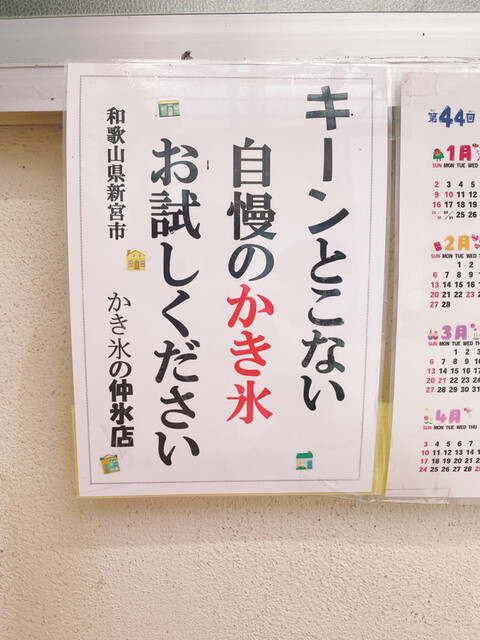 キーンとこない
自慢のかき氷
お試しください
和歌山県新宮市 かき氷の仲氷店
第44回
1月
SUN MON TUE WED
2 3 4 5
9 10 11 12
16 17 18 19
25 26
2月
SUN MON TUE WED
1 2
6 7 8 9
13 14 15 16
20 21 22 23
27 28
3月
SUN MON TUE WED
1 2 3
6 7 8 9 10
13 14 15 16 17
20 21 22 23 24
27 28 29 30 31
4月
SUN MON TUE WED THU
3 4 5 6 7
10 11 12 13 14
17 18 19 20 21
24 25 26 27 28